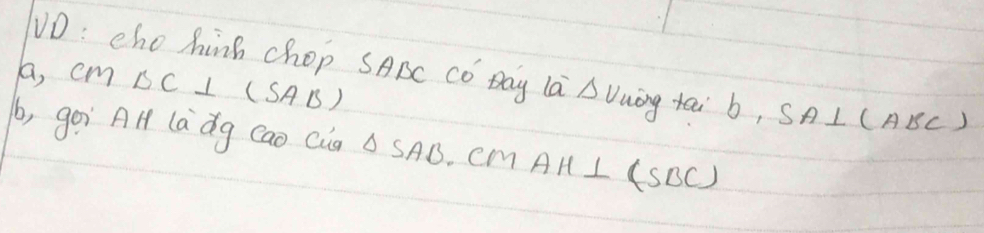 VD: cho hình chóp SABC có Đáy là Δ Vuông tại b, SA ⊥ (ABC)
a, CM BC ⊥ (SAB)
b, gọi AH là đg cao của Δ SAB. CM AH ⊥ (SBC)